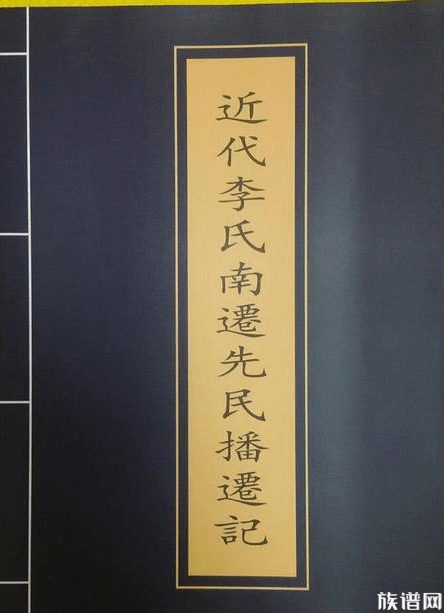 近代李氏南遷先民播遷記
族谱网